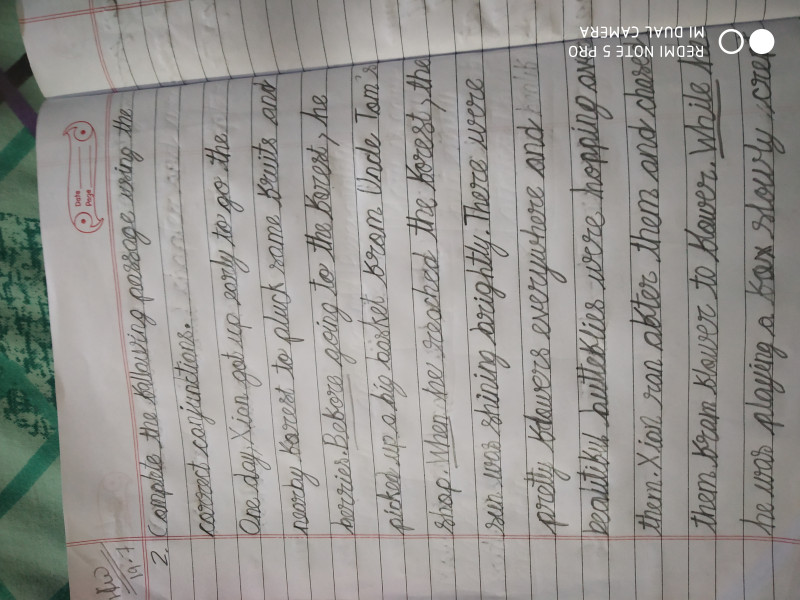 Date
Page
19.7
2. Complete the following passage using the
correct conjunctions.
One day, Xian got up early to go the
nearby forest to pluck some fruits and
berries. Before going to the forest, he
picked up a big basket from Uncle Tom's
shop. When he reached the forest, the
sun was shining brightly. There were
pretty flowers everywhere and
beautiful butterflies were hopping on
them. Xian ran after them and chase
them from flower to flower. While h
he was playing a fox slowly crep
REDMI NOTE 5 PRO
MI DUAL CAMERA